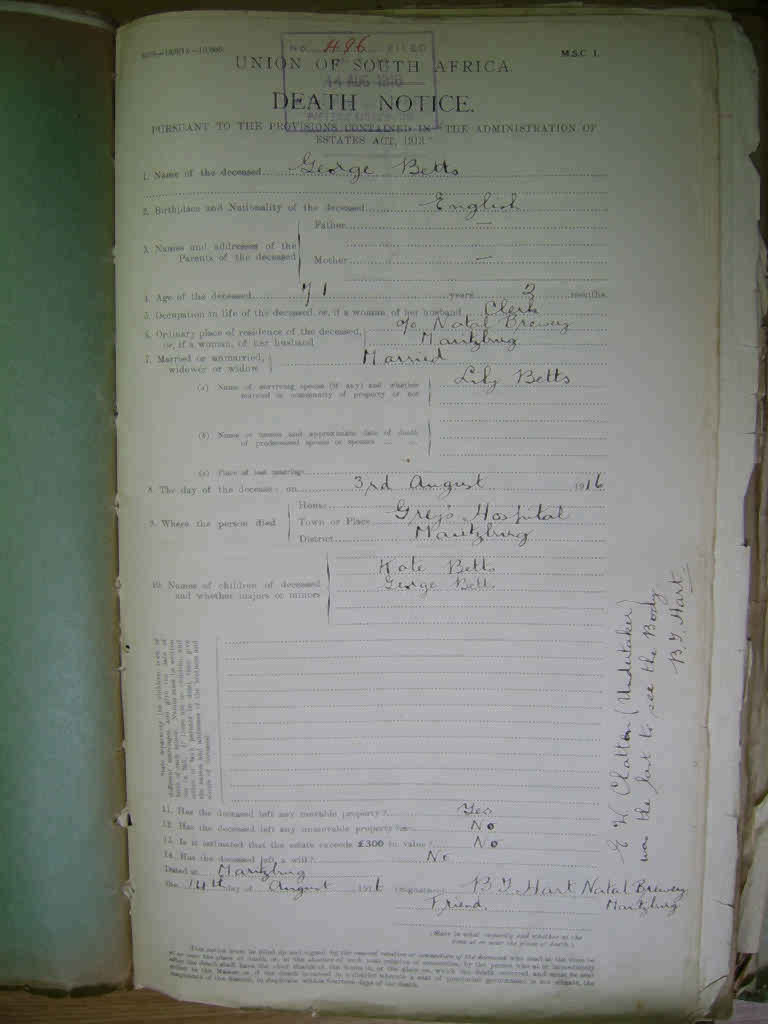 M.S.C. 1.
No. 486 FILED
UNION OF SOUTH AFRICA.
14 AUG 1916
DEATH NOTICE.
PURSUANT TO THE PROVISIONS CONTAINED IN "THE ADMINISTRATION OF
ESTATES ACT, 1913."
1. Name of the deceased George Betts
2. Birthplace and Nationality of the deceased English
3. Names and addresses of the Parents of the deceased
Father —
Mother —
4. Age of the deceased 71 years 3 months.
5. Occupation in life of the deceased, or, if a woman, of her husband Clerk
6. Ordinary place of residence of the deceased, or, if a woman, of her husband
c/o Natal Brewery
Maritzburg
7. Married or unmarried, widower or widow Married
(a) Name of surviving spouse (if any) and whether married in community of property or not
Lily Betts
(b) Name or names and approximate date of death of predeceased spouse or spouses
(c) Place of last marriage
8. The day of the decease: on 3rd August 1916
9. Where the person died
House
Town or Place Grey's Hospital
District Maritzburg
10. Names of children of deceased and whether majors or minors
Kate Betts
George Betts
11. Has the deceased left any movable property? Yes
12. Has the deceased left any immovable property? No
13. Is it estimated that the estate exceeds £300 in value? No
14. Has the deceased left a will? No
Dated at Maritzburg
the 14th day of August 1916 (Signature) B.T. Hart Natal Brewery
Friend. Maritzburg
(State in what capacity and whether at the
time at or near the place of death.)
E W Clatton (Undertaker)
was the last to see the Body
B.T. Hart